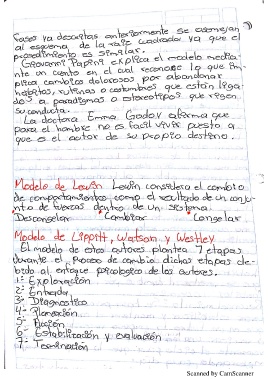 fases ya descritas anteriormente se asemejan
al esquema de la raíz cuadrada ya que el
procedimiento es similar.
Giovanni Papini explica el modelo media
nte un cuento en el cual reconoce lo que im-
plica cambios dolorosos por abandonar
habitos, rutinas o costumbres que estan liga-
das a paradigmas o estereotipos que rigen
su conducta.
La doctora Emma Godoy afirma que
para el hombre no es facil vivir puesto a
que es el autor de su propio destino.
Modelo de Lewin Lewin considera el cambio
de comportamientos como el resultado de un conju
nto de fuerzas dentro de un sistema.
Descongelar Cambiar Congelar
Modelo de Lippitt, Watson y Westley
El modelo de estos autores plantea 7 etapas
durante el proceso de cambio dichas etapas de-
bido al enfoque psicologico de los autores.
1- Exploración
2- Entrada
3- Diagnostico
4- Planeación
5- Acción
6- Estabilización y evaluación
7- Terminación
Scanned by CamScanner